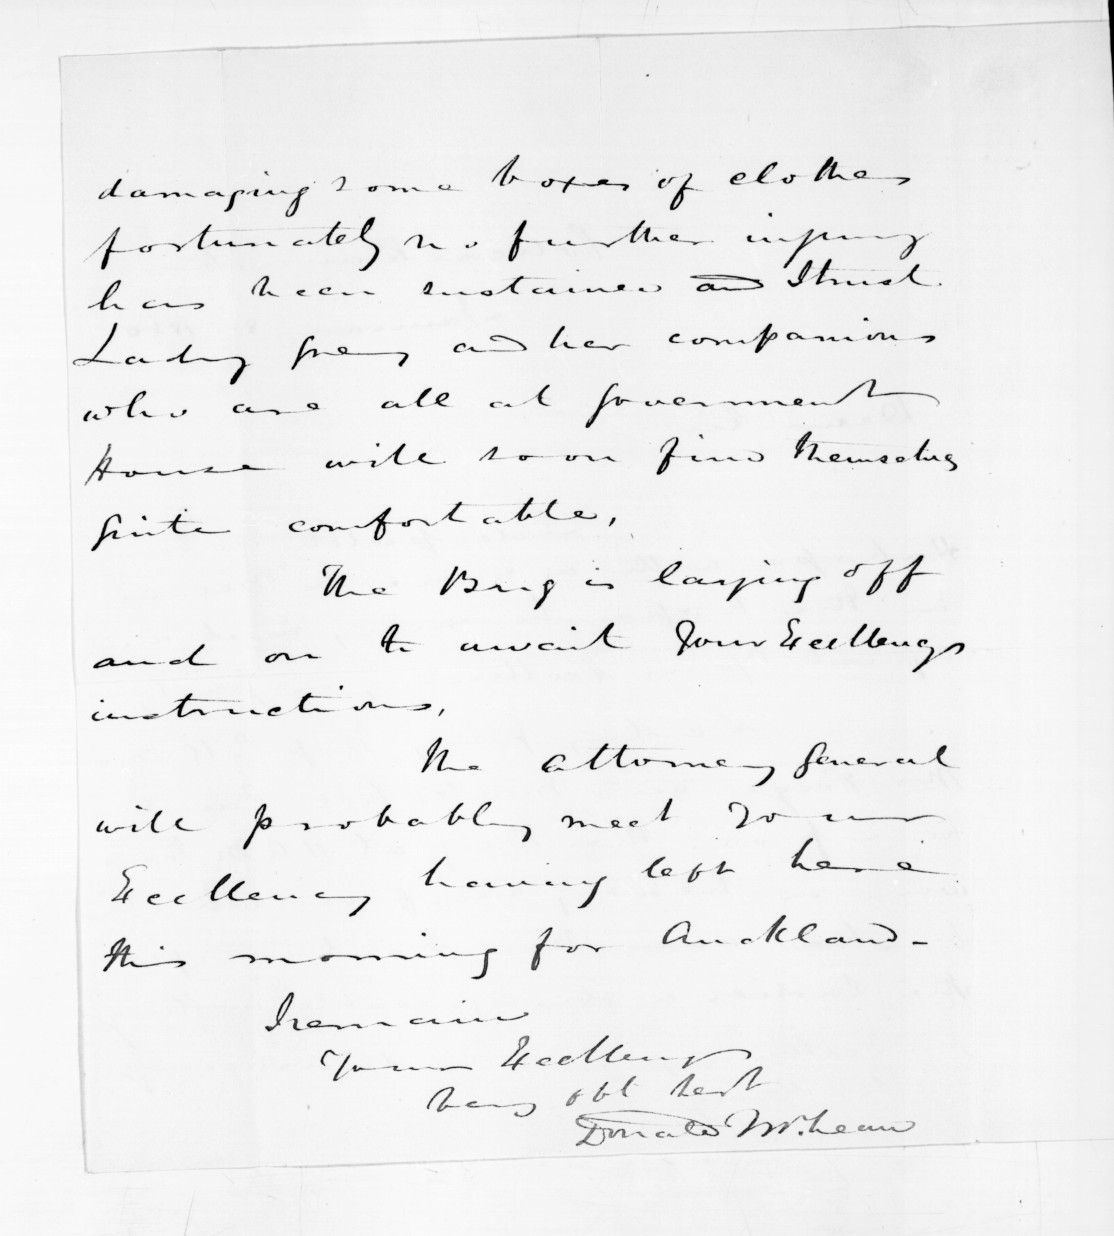 damaging some boxes of clothes
fortunately no further injury
has been sustained and I trust
Lady Grey and her companions
who are all at Government
House will soon find themselves
quite comfortable,
The Brig is laying off
and on to await Your Excellencys
instructions,
The Attorney General
will probably meet Your
Excellency having left here
this morning for Auckland-
I remain
Your Excellencys
very obt Servt
Donald McLean